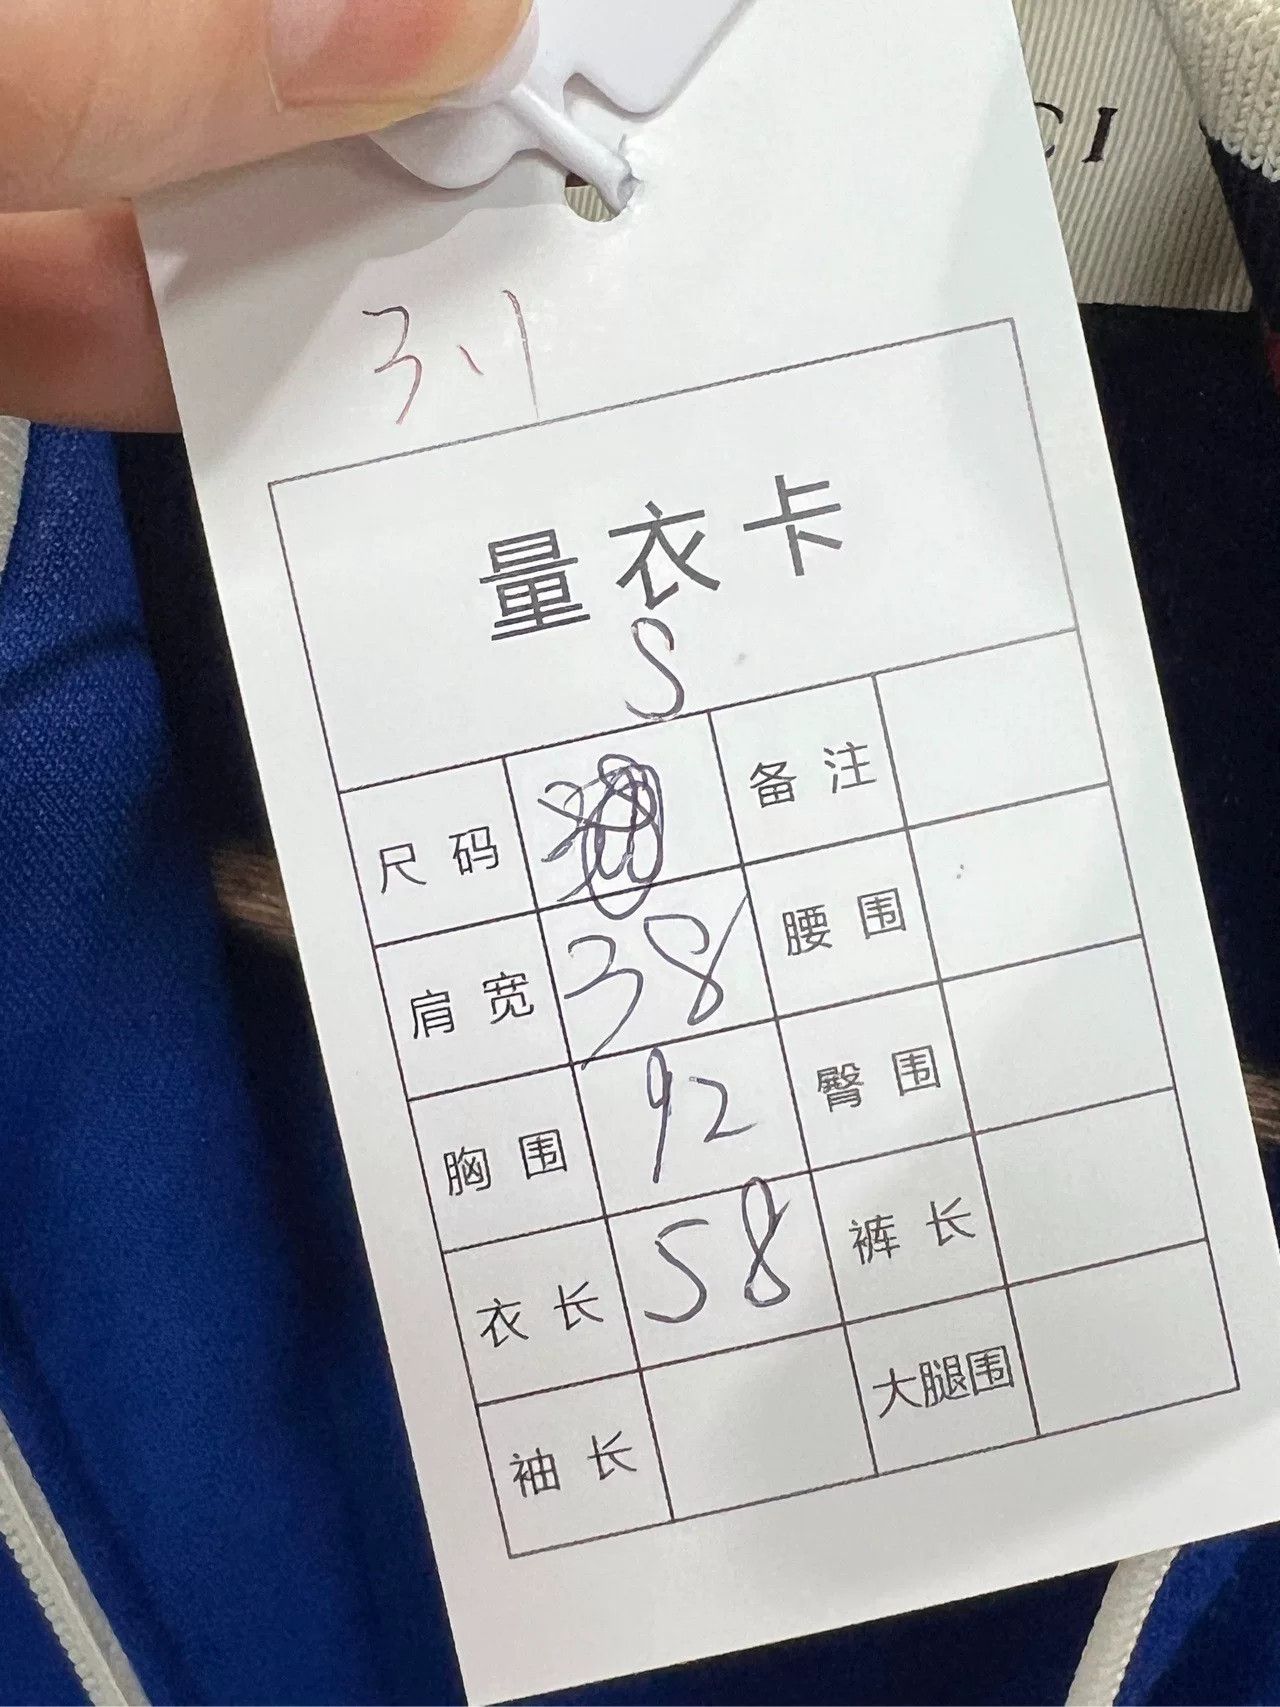 CI
3、1
量衣卡
S
尺码 备注
肩宽 38 腰围
胸围 92 臀围
衣长 58 裤长
袖长 大腿围